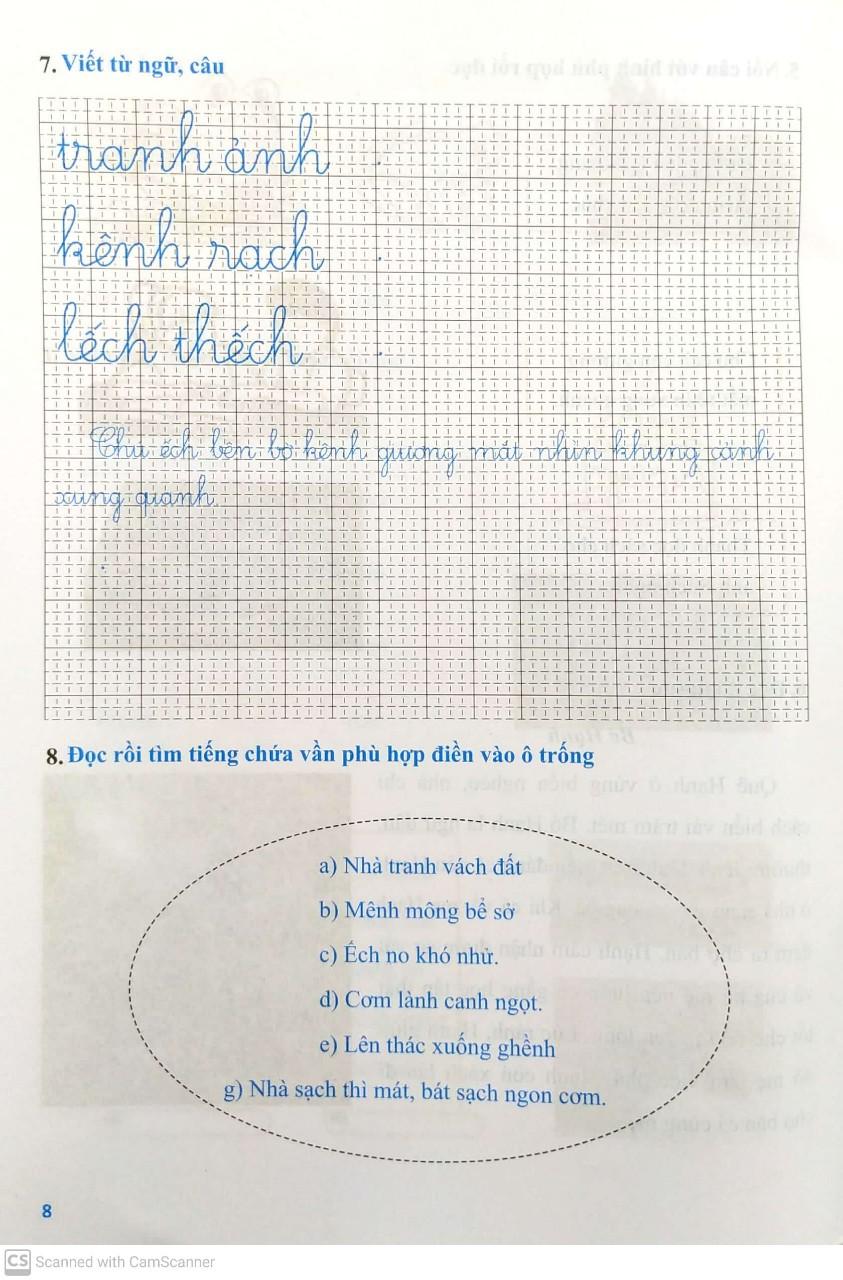 7. Viết từ ngữ, câu
tranh ảnh
kênh rạch
lếch thếch
Chú ếch bên bờ kênh giương mắt nhìn khung cảnh
xung quanh.
8. Đọc rồi tìm tiếng chứa vần phù hợp điền vào ô trống
a) Nhà tranh vách đất
b) Mênh mông bể sở
c) Ếch no khó nhử.
d) Cơm lành canh ngọt.
e) Lên thác xuống ghềnh
g) Nhà sạch thì mát, bát sạch ngon cơm.
8
CS Scanned with CamScanner